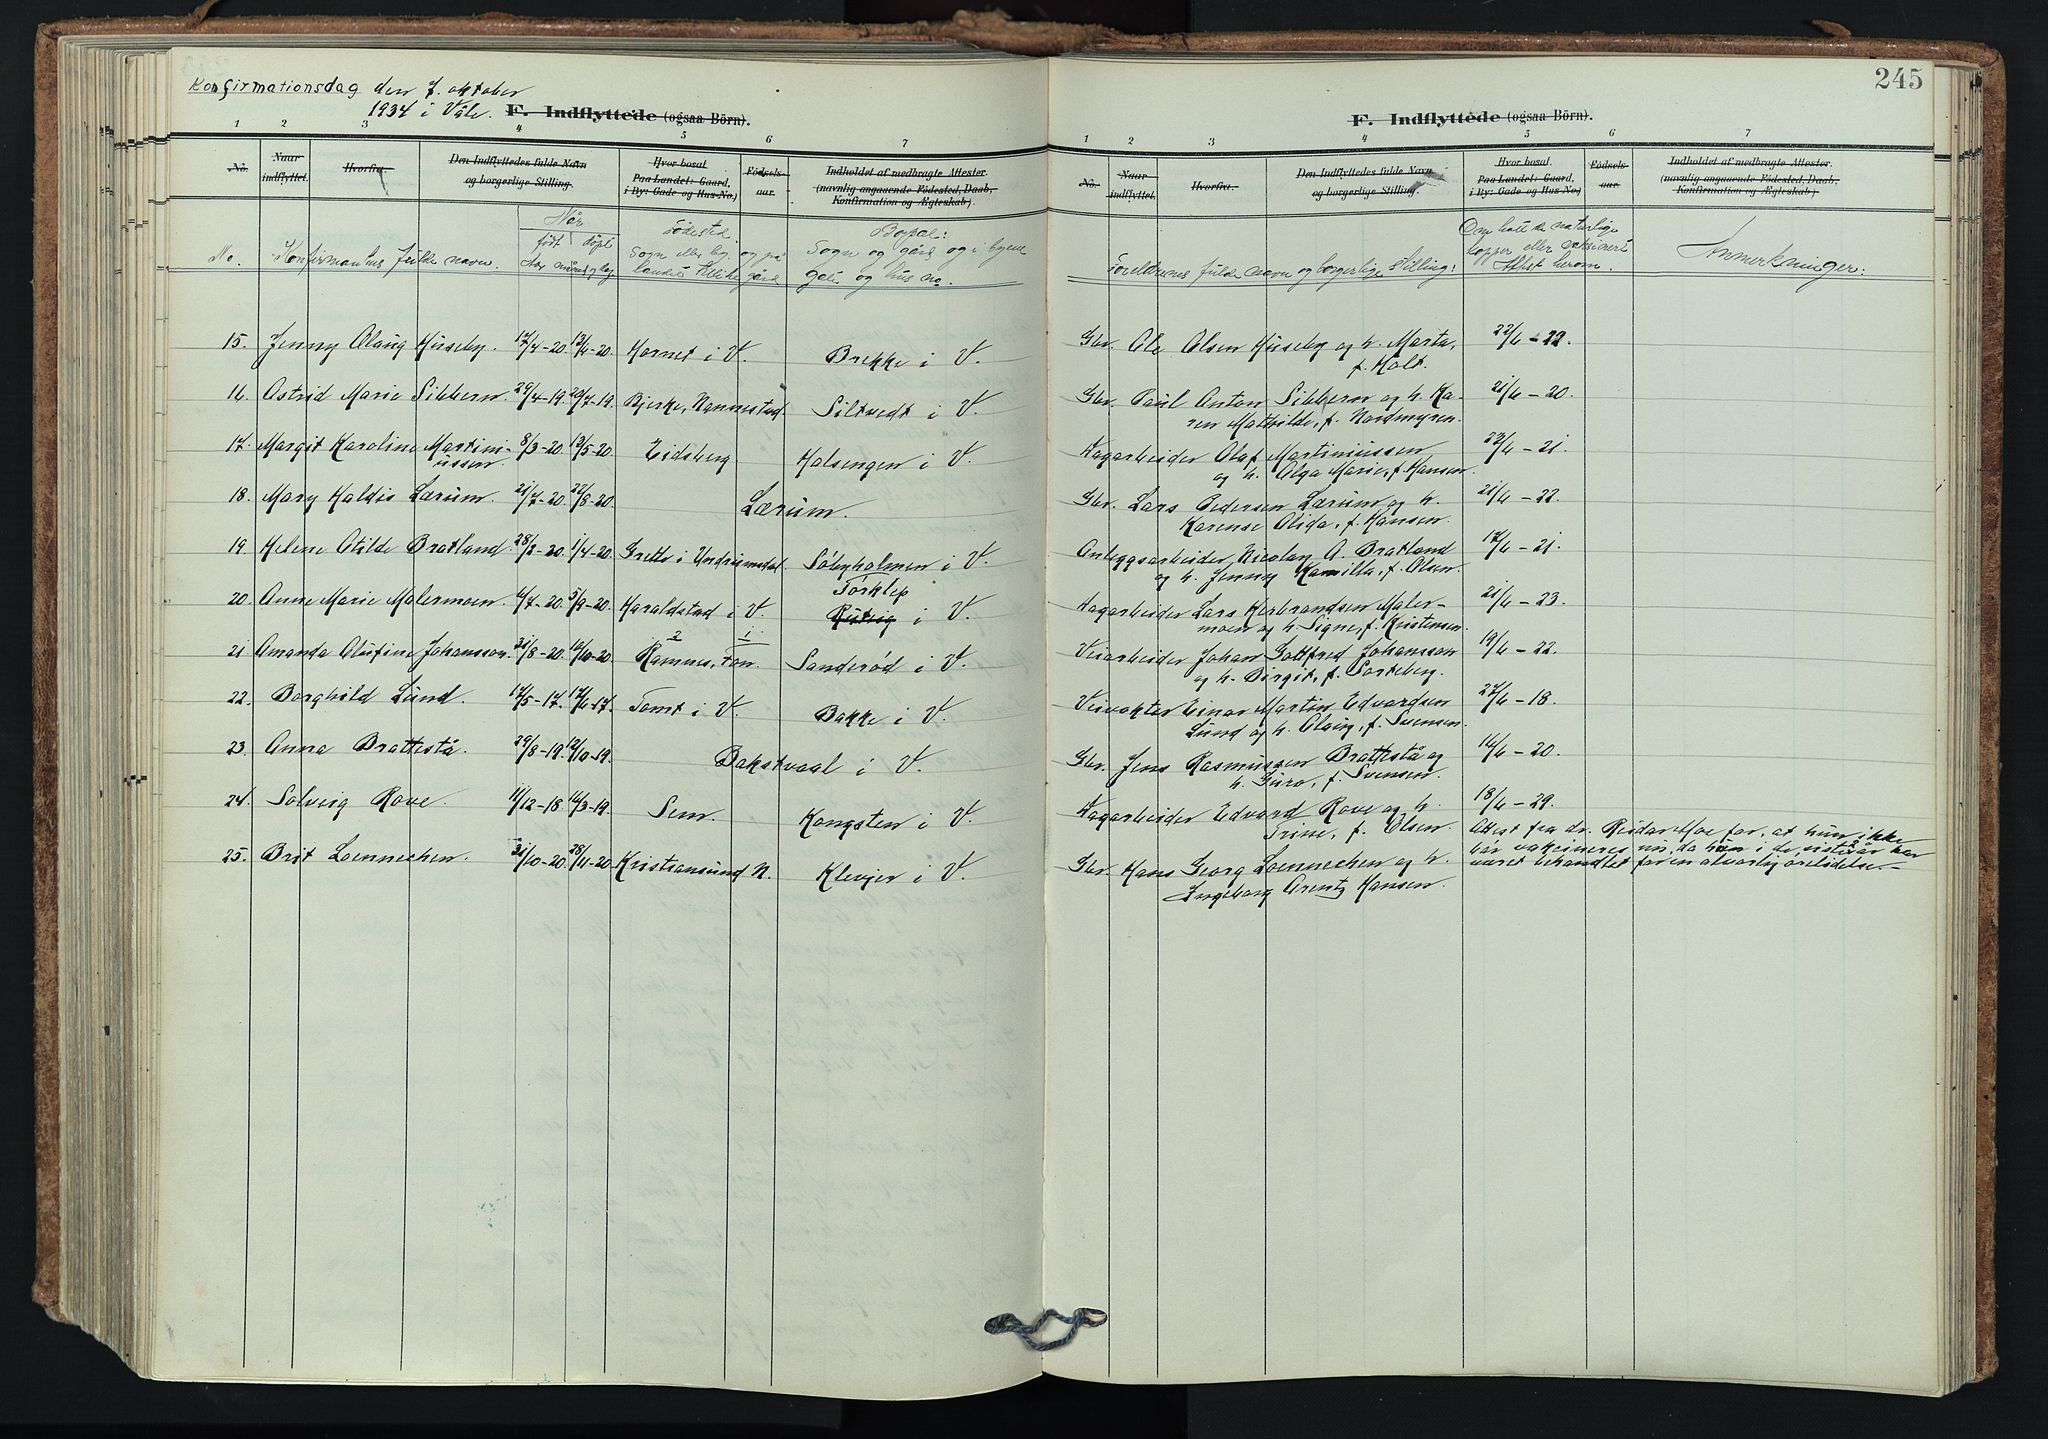 Konfirmationsdag den 7. oktober
1934 i Våle.
F. Indflyttede (ogsaa Börn).
1 2 3 4 5 6 7
No.
Naar indflyttet.
Hvorfra.
Den Indflyttedes fulde Navn og borgerlige Stilling.
Hvor bosat
Paa Landet: Gaard,
i By: Gade og Hus-No.)
Födsels-aar.
Indholdet af medbragte Attester.
(navnlig angaaende Födested, Daab,
Konfirmation og Ægteskab).
No.
Konfirmantens fulde navn.
Når
født døpt
Aar måned og dag
Fødested
Sogn eller by, og på
landet tillike gård
Bopæl:
Sogn og gård og i byene
gate og hus no.
15. Jenny Olaug Huseby. 17/4-20. 13/6-20. Hornet i V. Brekke i V.
16. Astrid Marie Sibbern 29/4-19. 20/7-19. Bjerke, Nannestad Siltvedt i V.
17. Margit Karoline Martini-
ussen. 8/3-20. 13/5-20 Eidsberg Halsengen i V.
18. Mary Haldis Lærum. 21/7-20. 22/8-20. Lærum.
19. Helene Otilde Bratland. 28/2-20. 1/4-20. Grette i Undrumsdal. Solbyholmen i V.
Torklep
20. Anne Marie Malermoen. 4/7-20. 5/9-20. Haraldstad i V. i V.
21 Amanda Olufine Johansson. 31/8-20. 10/10-20. Ramnes, Fon. Sanderød i V.
2 1
22. Borghild Lund. 17/5-17. 17/6-17. Tomt i V. Bakke i V.
23. Anna Brattestå. 29/8-19. 12/10-19. Bakstvaal i V.
24. Solveig Rove. 11/12-18. 16/3-19. Sem. Kongsten i V.
25. Brit Loennechen. 31/10-20. 28/11-20 Kristiansund N. Klevjer i V.
245
F. Indflyttede (ogsaa Börn).
1 2 3 4 5 6 7
No.
Naar indflyttet.
Hvorfra.
Den Indflyttedes fulde Navn og borgerlige Stilling.
Hvor bosat.
Paa Landet: Gaard,
i By: Gade og Hus-No.)
Födsels-aar.
Indholdet af medbragte Attester.
(navnlig angaaende Födested, Daab,
Konfirmation og Ægteskab).
Foreldrenes fulde navn og borgerlige stilling:
Om hatt de naturlige
kopper eller vaksinert
Attest herom.
Anmerkninger:
Gbr. Ole Olsen Huseby og h. Marta, 22/6-22.
f. Holt.
Gbr. Paul Anton Sibbern og h. Ka- 21/6-20.
ren Mathilde, f. Nordmyren.
Dagarbeider Olaf Martiniussen 22/6-21.
og h. Olga Marie, f. Hansen.
Gbr. Lars Pedersen Lærum og h. 21/6-22.
Karense Olida, f. Hansen.
Anleggsarbeider Nicolay A. Bratland 17/6-21.
og h. Jenny Kamilla, f. Olsen.
Dagarbeider Lars Herbrandsen Maler- 21/6-23.
moen og h. Signe, f. Kristensen.
Veiarbeider Johan Gottfred Johansson 19/6-22.
og h. Birgit, f. Sorteberg.
Veivokter Einar Martin Edvardsen 27/6-18.
Lund og h. Olaug, f. Svensen.
Gbr. Jens Rasmussen Brattestå og 16/6-20.
h. Guro, f. Svensen.
Dagarbeider Edvard Rove og h. 18/6-29.
Trine, f. Olsen.
Attest fra dr. Reidar Moe for, at hun ikke
Gbr. Hans Georg Loennechen og h. bør vaksineres nu, da hun i de siste 2 år har
Ingeborg Arentz Hansen. været behandlet for en alvorlig ørelidelse.-